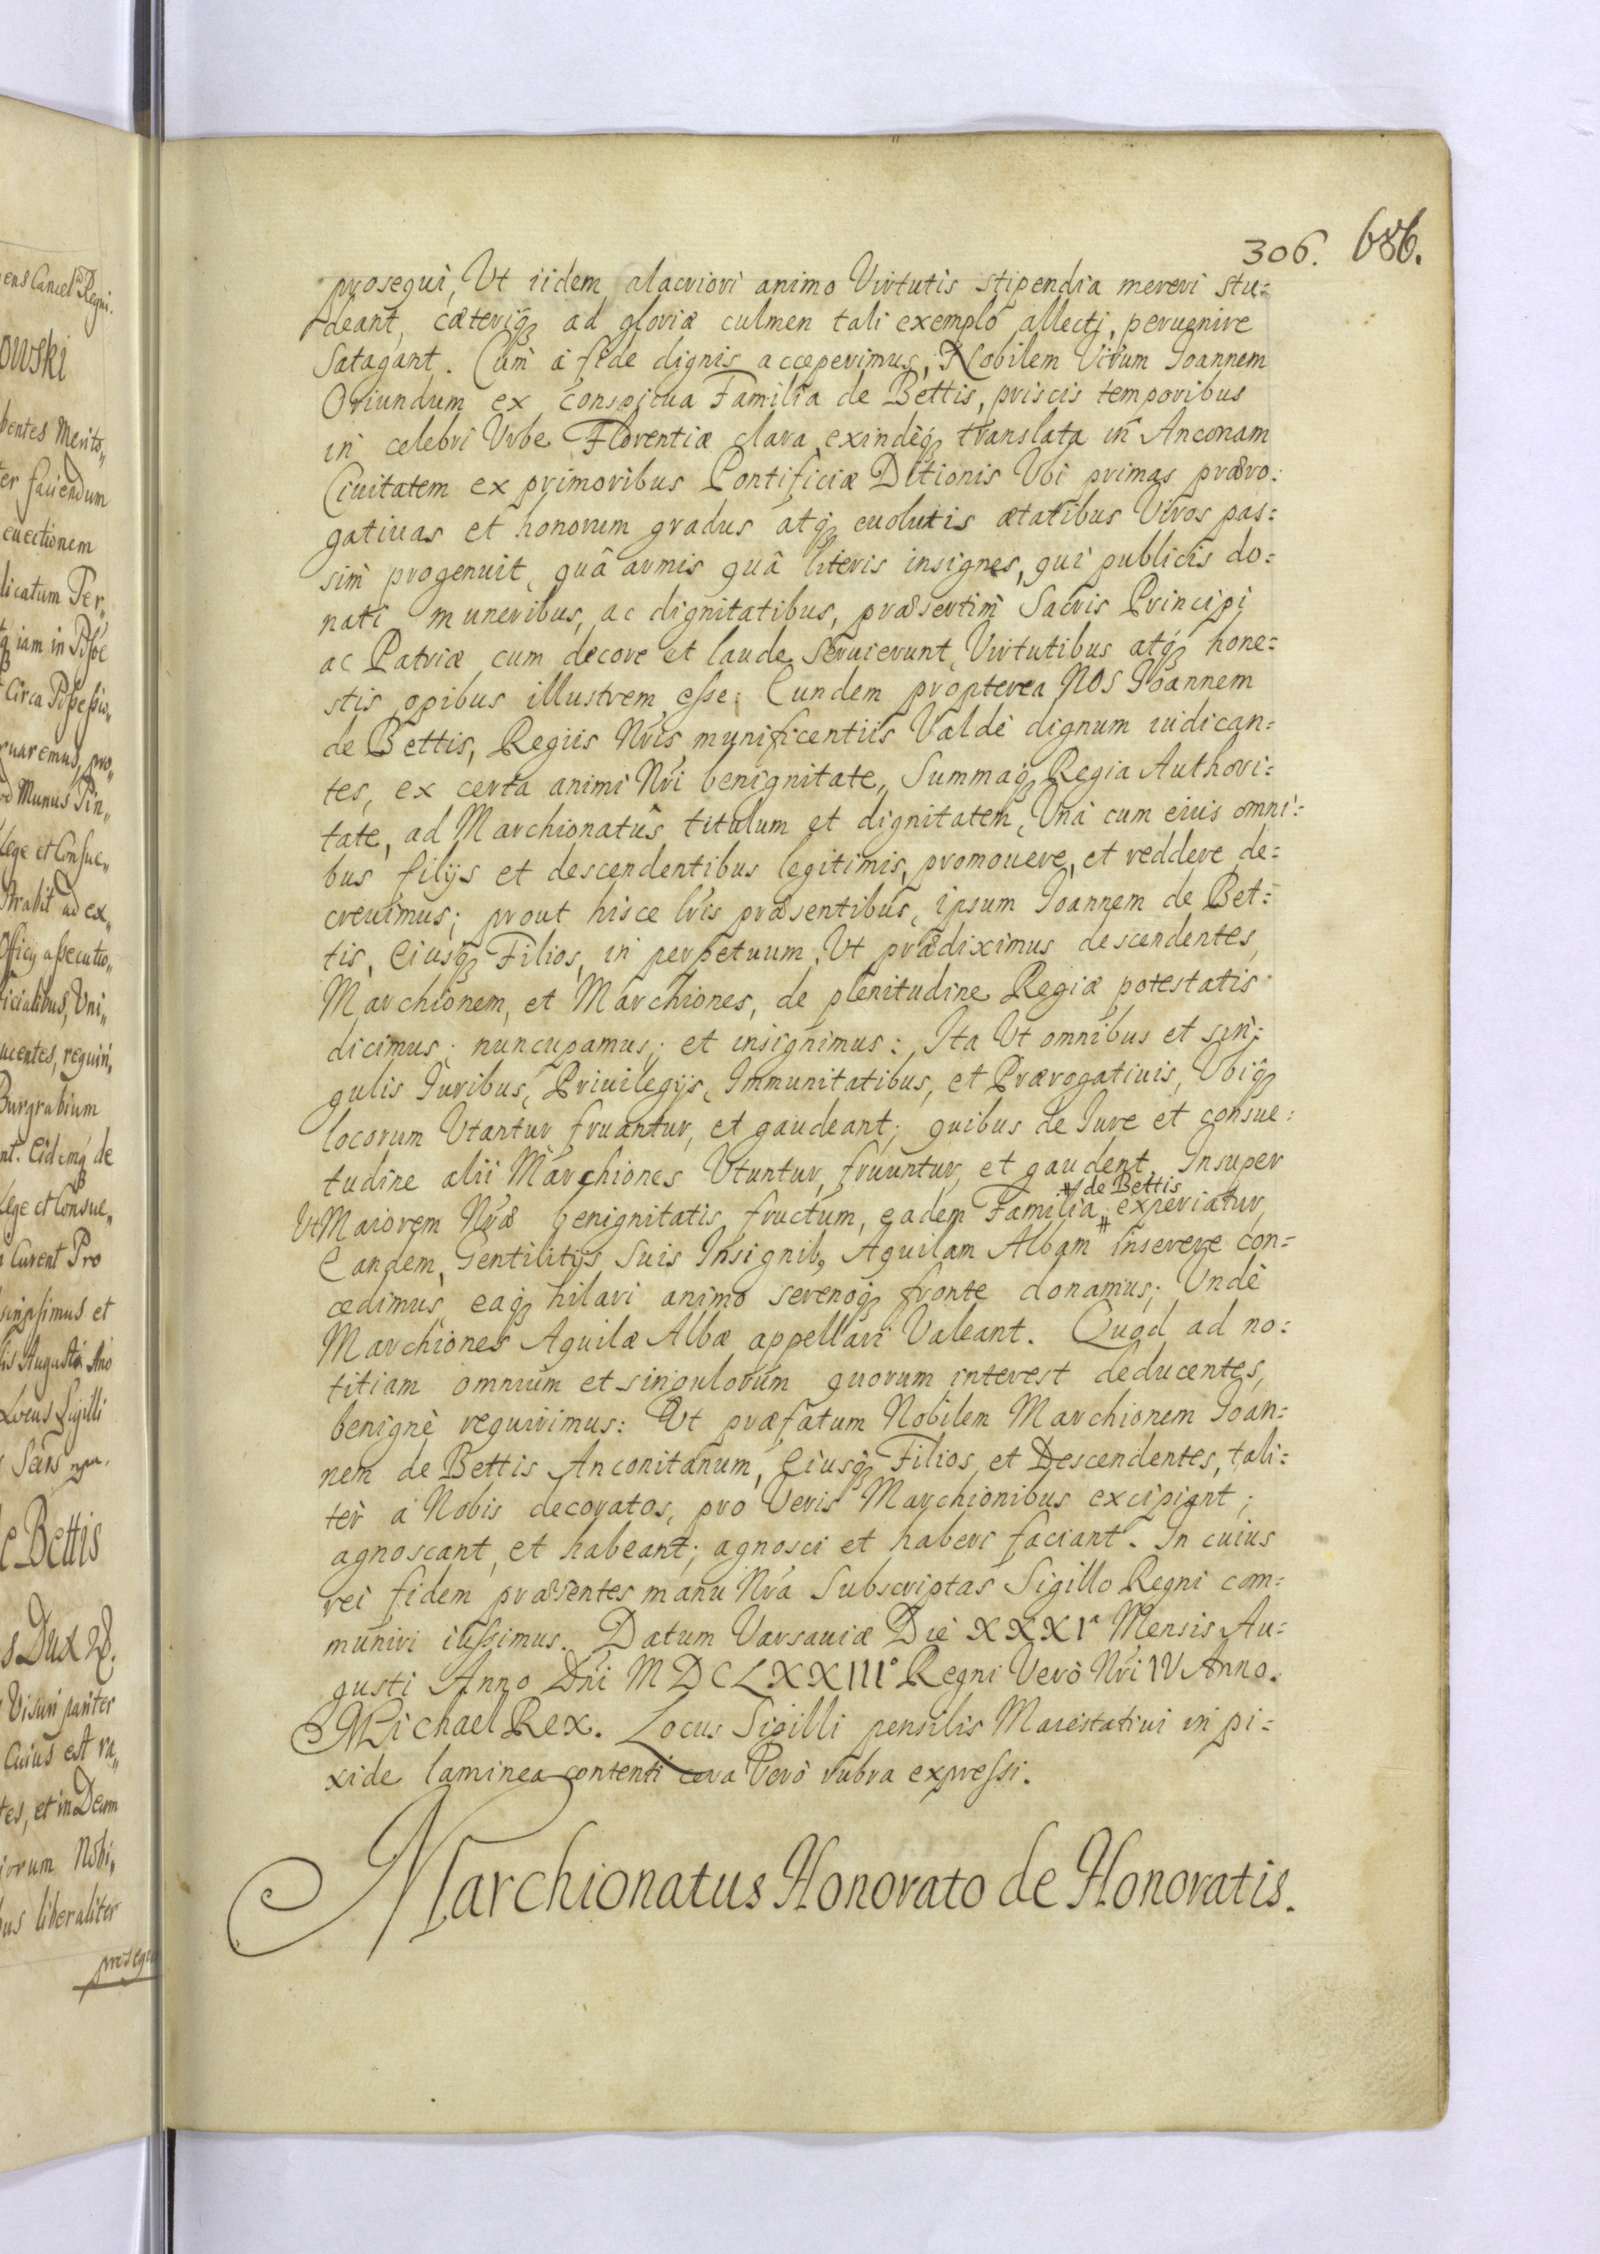 306. 686.
prosequi, Vt iidem alacriori animo Virtutis stipendia mereri stu=
deant, cæteriq3 ad gloriæ culmen tali exemplo allecti, peruenire
Satagant. Cum à fide dignis acceperimus, Nobilem Virum Ioannem
Oriundum ex conspicua Familia de Bettis, priscis temporibus
in celebri Vrbe Florentiæ clara exindèq3 translata in Anconam
Ciuitatem ex primoribus Pontificiæ Ditionis Vbi primas præro=
gatiuas et honorum gradus atq3 euolutis ætatibus Viros pas=
sim progenuit, quâ armis quâ literis insignes, qui publicis do=
nati muneribus, ac dignitatibus, præsertim Sacris Principi
ac Patriæ cum decore et laude Seruierunt, Virtutibus atq3 hone=
stis opibus illustrem esse. Eundem propterea NOS Ioannem
de Bettis, Regiis Nris munificentiis Valdè dignum iudican=
tes, ex certa animi Nri benignitate, Summaq3 Regia Authori=
tate, ad Marchionatûs titulum et dignitatem, Vnà cum eius omni=
bus filijs et descendentibus legitimis, promouere, et reddere de=
creuimus; prout hisce lris præsentibus, ipsum Ioannem de Bet=
tis, Eiusq3 Filios, in perpetuum, Vt prædiximus descendentes,
Marchionem, et Marchiones, de plenitudine Regiæ potestatis
dicimus, nuncupamus, et insignimus: Ita Vt omnibus et sin=
gulis Iuribus, Priuilegijs, Immunitatibus, et Prærogatiuis, Vbiq3
locorum Vtantur, fruantur, et gaudeant, quibus de Iure et consue=
tudine alii Marchiones Vtuntur, fruuntur, et gaudent. Insuper
# de Bettis
Vt Maiorem Nræ benignitatis fructum, eadem Familia # experiatur,
Eandem, Gentilitijs Suis Insignib9, Aquilam Albam inserere con=
cedimus eaq3 hilari animo serenoq3 fronte donamus; Vndè
Marchiones Aquilæ Albæ appellari Valeant. Quod ad no=
titiam omnium et singulorum quorum interest deducentes,
benignè requirimus: Vt præfatum Nobilem Marchionem Ioan=
nem de Bettis Anconitanum, Eiusq3 Filios, et Descendentes, tali=
tèr à Nobis decoratos, pro Veris Marchionibus excipiant;
agnoscant, et habeant; agnosci et haberi faciant. In cuius
rei fidem præsentes manu Nra Subscriptas Sigillo Regni com=
muniri iussimus. Datum Varsauiæ Die XXXIa Mensis Au=
gusti Anno Dni MDCLXXIIIo Regni Verò Nri IV Anno.
Michael Rex. Locus Sigilli pensilis Maiestatiui in pi=
xide laminea contenti cera Verò rubra expressi.
Marchionatus Honorato de Honoratis.
owski
bentes Merito„
er faciendum
euectionem
dicatum Per„
iam in Posse
Circa Possessio„
uaremus, pro„
Munus Pin„
Lege et Consue„
ad ex„
Officij assecutio„
icialibus, Vni„
Burgrabium
nt. Eidemq3 de
Lege et Consue„
Curent Pro
et
Augusti Ano
Locus Sigilli
de Bettis
Dux
Visuri pariter
Cuius est ra„
tes, et in Deum
iorum Nobi„
us liberaliter
prosequi